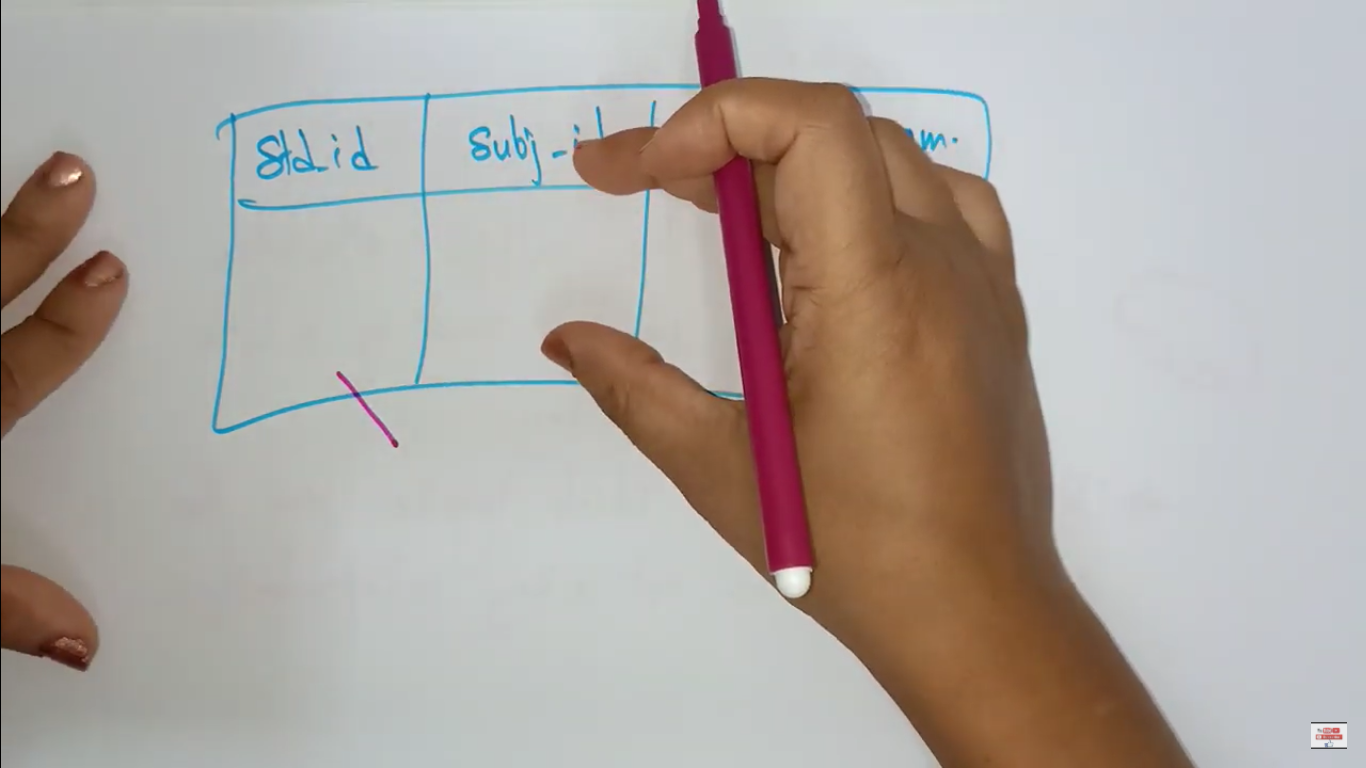 Std_id Subj-id